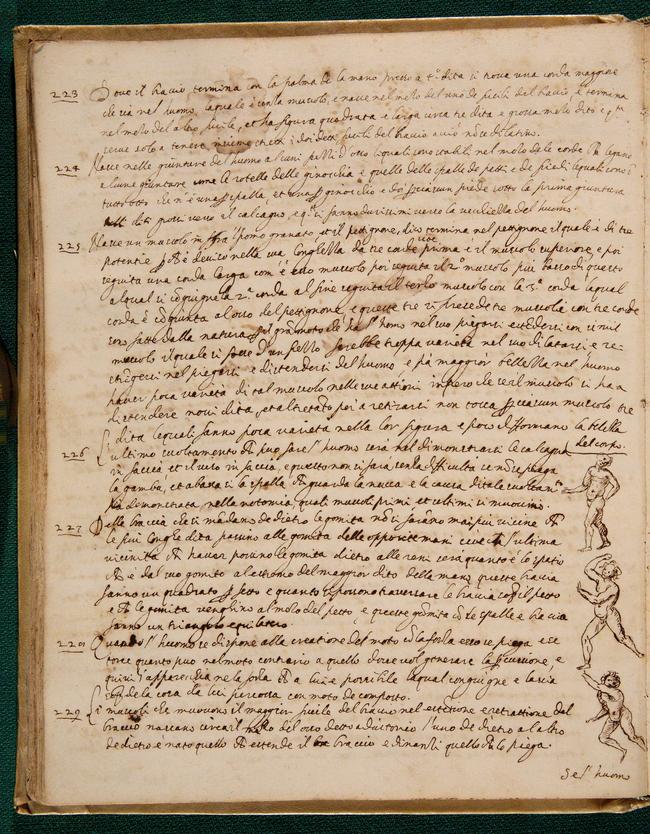 223 Dove il braccio termina con la palma de la mano presso a 4º dita si trova una corda maggiore
che sia nel huomo, la quale è senza muscolo, e nasce nel mezo del uno de fucili del braccio e termina
nel mezo del altro fucile, et ha figura quadrata e larga circa tre dita e grossa mezo dito e q.ta
serve solo a tenere insieme stretti i doi detti fucili del braccio acciò nõ se dilatino.
224 Nasce nelle giunture del huomo alcuni pezzi d'osso li quali sono stabili nel mezo de le corde che legano
alcune giunture come le rotelle delle ginochia e quelle delle spalle de petti e de piedi le quali sono
tutto otto che n'è una spalla, et una ginochio e doi ciascun piede sotto la prima giuntura
deti grossi verso il calcagno, e q.ti si fanno durissimi verso la vecchiezza del huomo.
225 Nasce un muscolo infra il pomo granato et il pettignone, dico termina nel pettignone il quale è di tre
potentie che è deviso nella sua longhezza da tre corde cioè prima è il muscolo superiore, e poi
seguita una corda larga com'è esso muscolo poi seguita il 2º muscolo più basso di questo
al qual si cõgiunge la 2ª corda al fine seguita il terzo muscolo con la 3ª corda la qual
corda è cõgiunta al osso del pettignone, e queste tre riprese de tre muscoli con tre corde
sono fatte dalla natura per grã moto de ha l'homo nel suo piegarsi et distendersi con simil
muscolo il quale si fosse d'un pezzo sarebbe troppa varietà nel suo dilatarsi e re-
stringersi nel piegarsi e distendersi del huomo e fa maggior bellezza nel huomo
haver poca varietà di tal muscolo nelle sue attioni imperoche se il muscolo si ha a
distendere nove dita, et altretanto poi a retirarsi non tocca ciascun muscolo tre
dita le quali fanno poca varietà nella lor figura e poco diformano la bellezza
del corpo.
226 L'ultimo svoltamento che può fare l'huomo sarà nel dimostrarsi le calcagna
in faccia et il viso in faccia, e questo non si farà senza difficultà se nõ si piega
la gamba, et abassasi la spalla che guarda la nucca e la causa di tale svoltamẽto
fia demostrata nella notomia, quali muscoli primi et ultimi si muovino.
227 Delle braccia che si mãdano de dietro le gomita nõ si farãno mai più vicine che
le più longhe dita passino alle gomita delle opposite mani cioè che l'ultima
vicinità che haver possono le gomita dietro alle reni sarà quanto è lo spatio
che è dal suo gomito al estremo del maggior dito della mano queste braccia
fanno un quadrato perfetto e quanto si possono traversare le braccia sopra il petto
e che le gomita venghino al mezo del petto, e queste gomita cõ le spalle e braccia
fanno un triangolo equilatero.
228 Quando l'huomo se dispone alla creatione del moto cõ la forza esso se piega e se
torce quanto può nel moto contrario a quello dove vol generare la percussione, e
quivi s'apparechia nela forza che a lui è possibile la qual congiugne e lascia
sopra de la cosa da lui percossa con moto decomposto.
229 Li muscoli che muovono il maggior fucile del braccio nel estetione e retrattione del
braccio nascano circa il mezo del osso detto adiutorio l'uno de dietro al altro
de dietro è nato quello che estende il braccio e dinanzi quello che lo piega.
Se l'huomo